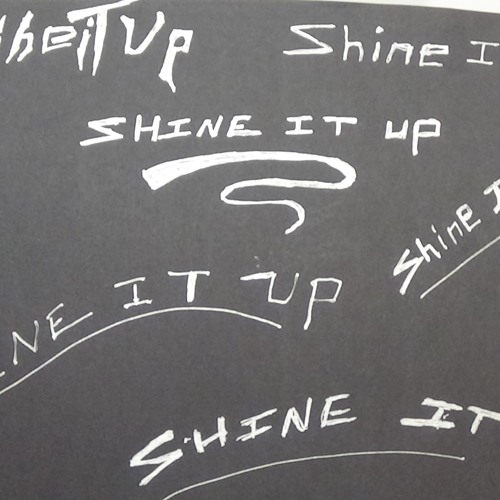 It Up
Shine I
SHINE IT UP
Shine I
INE IT UP
SHINE IT